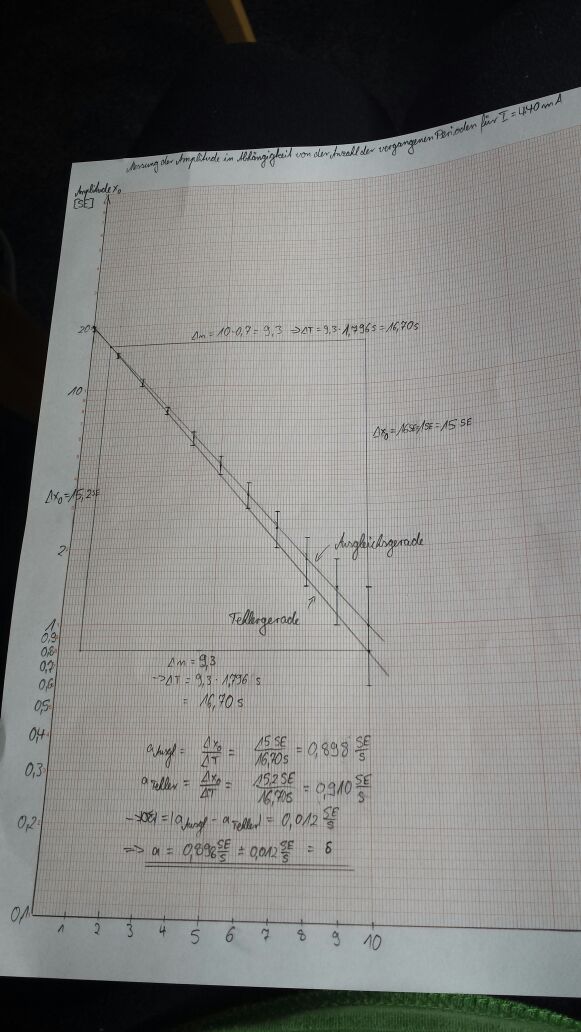 Messung der Amplitude in Abhängigkeit von der Anzahl der vergangenen Perioden für I = 440 mA
Amplitude x₀
[SE]
20
Δm = 10-0,7 = 9,3 ⇒ΔT = 9,3·1,796s = 16,70s
10
Δx₀ = 16SE-1SE = 15 SE
Δx₀ = 15,2SE
Ausgleichsgerade
2
Fehlergerade
1
0,9
0,8
0,7
0,6
0,5
0,4
0,3
0,2
0,1
Δm = 9,3
→ΔT = 9,3 · 1,796 s
= 16,70 s
a Ausgl = Δx₀/ΔT = 15 SE/16,70s = 0,898 SE/s
a Fehler = Δx₀/ΔT = 15,2 SE/16,70s = 0,910 SE/s
= |a Ausgl - a Fehler| = 0,012 SE/s
⇒ a = 0,898 SE/s ± 0,012 SE/s = δ
1 2 3 4 5 6 7 8 9 10